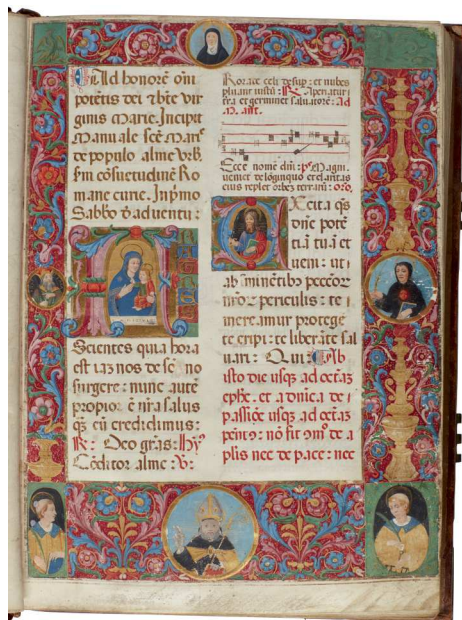 Ad honorē om̄
potētis dei ⁊ bt̄e vir
ginis Marie. Incipit
Manuale scē Marᵉ
de populo alme Vrb.
fm̄ cōsuetudinē Ro
mane curie. In pͥmo
Sabbo ꝺ aduentu:
Scientes quia hora
est iaz nos de sō no
surgere: nunc autē
propior ē nr̄a salus
qȝ cū credidimus:
℟: Deo gras: Hyᵒ
Cōditor alme: ℣:
Rorate celi desup: et nubes
pluant iustū: ℟ Aperiatur
t̄ra et germinet saluatorē: ad
M. ant.
Ecce nomē dn̄i: pˢ Magni.
uenit de lōginquo et claritas
eius replet orbez terrarū: oro.
Xcita qs
dn̄e potē
tiā tuā et
ueni: ut
ab īminētibȝ peccōr
nr̄oꝝ periculis: te
mereamur protegē
te eripi: te liberāte sal
uari: Qui: Ab
isto die usqȝ ad octaȝ
eph̄e: et a dnica de
passiōe usqȝ ad octaȝ
pent: nō fit
nec de pace: nec